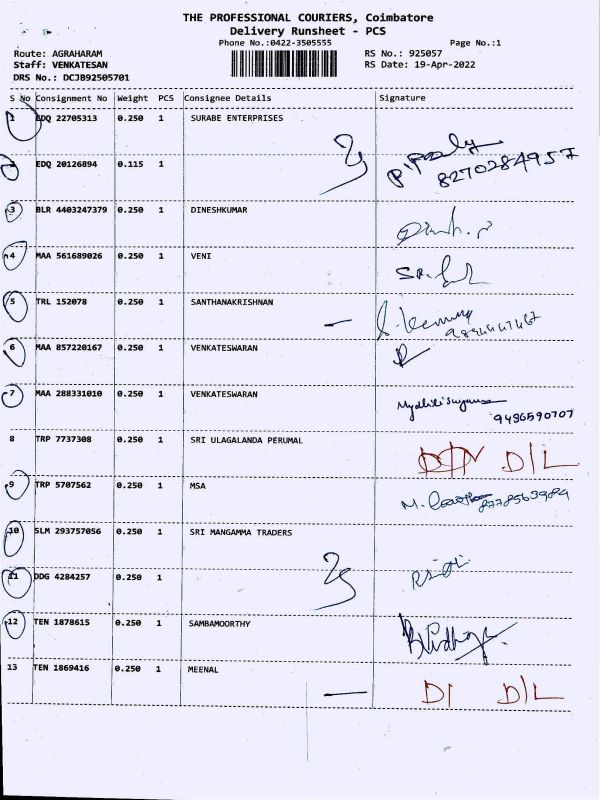 THE PROFESSIONAL COURIERS, Coimbatore
Delivery Runsheet - PCS
Phone No.:0422-3505555 Page No.:1
Route: AGRAHARAM RS No.: 925057
Staff: VENKATESAN RS Date: 19-Apr-2022
DRS No.: DCJB92505701
S No Consignment No Weight PCS Consignee Details Signature
1 EDQ 22705313 0.250 1 SURABE ENTERPRISES
2 EDQ 20126894 0.115 1
8270284957
3 BLR 4403247379 0.250 1 DINESHKUMAR
4 MAA 561689026 0.250 1 VENI
5 TRL 152078 0.250 1 SANTHANAKRISHNAN
6 MAA 857220167 0.250 1 VENKATESWARAN
7 MAA 288331010 0.250 1 VENKATESWARAN
9486590707
8 TRP 7737308 0.250 1 SRI ULAGALANDA PERUMAL D/L
9 TRP 5707562 0.250 1 MSA
10 SLM 293757056 0.250 1 SRI MANGAMMA TRADERS
11 DDG 4284257 0.250 1
12 TEN 1878615 0.250 1 SAMBAMOORTHY
13 TEN 1869416 0.250 1 MEENAL D/L